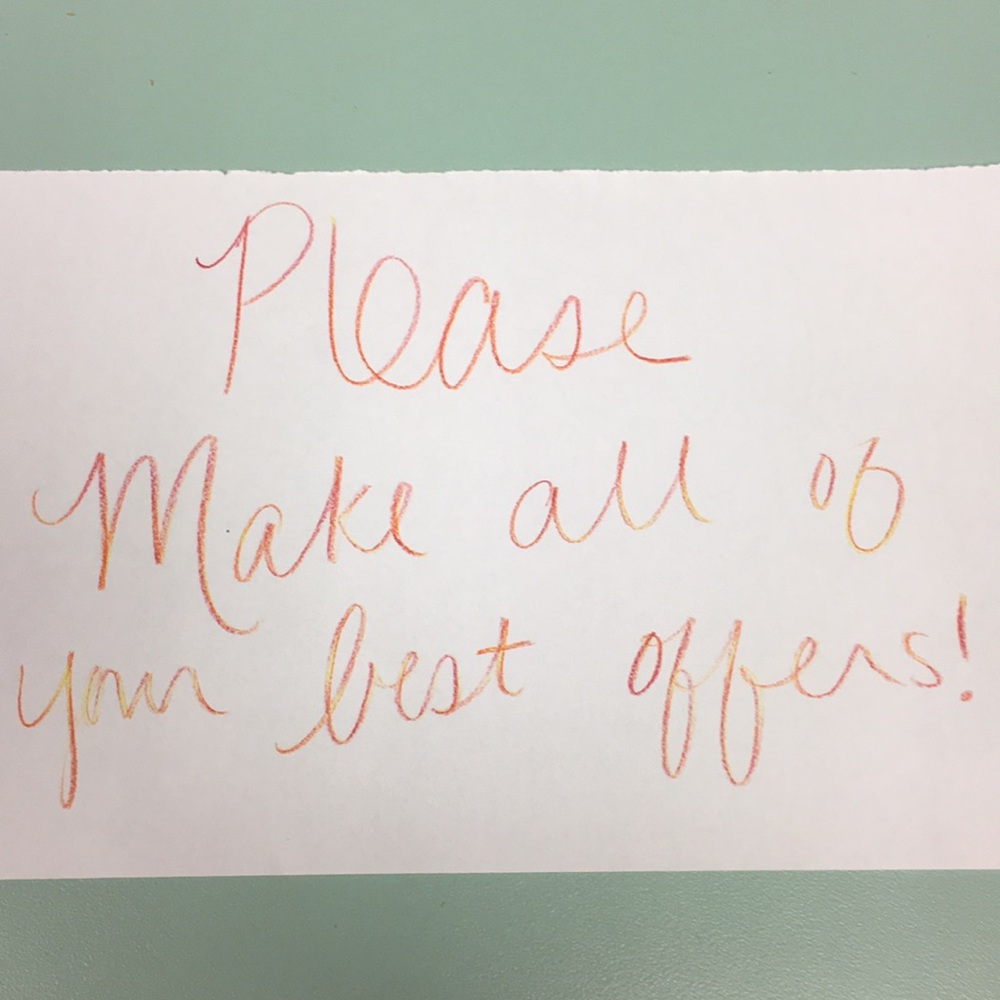 Please
Make all of
your best offers!